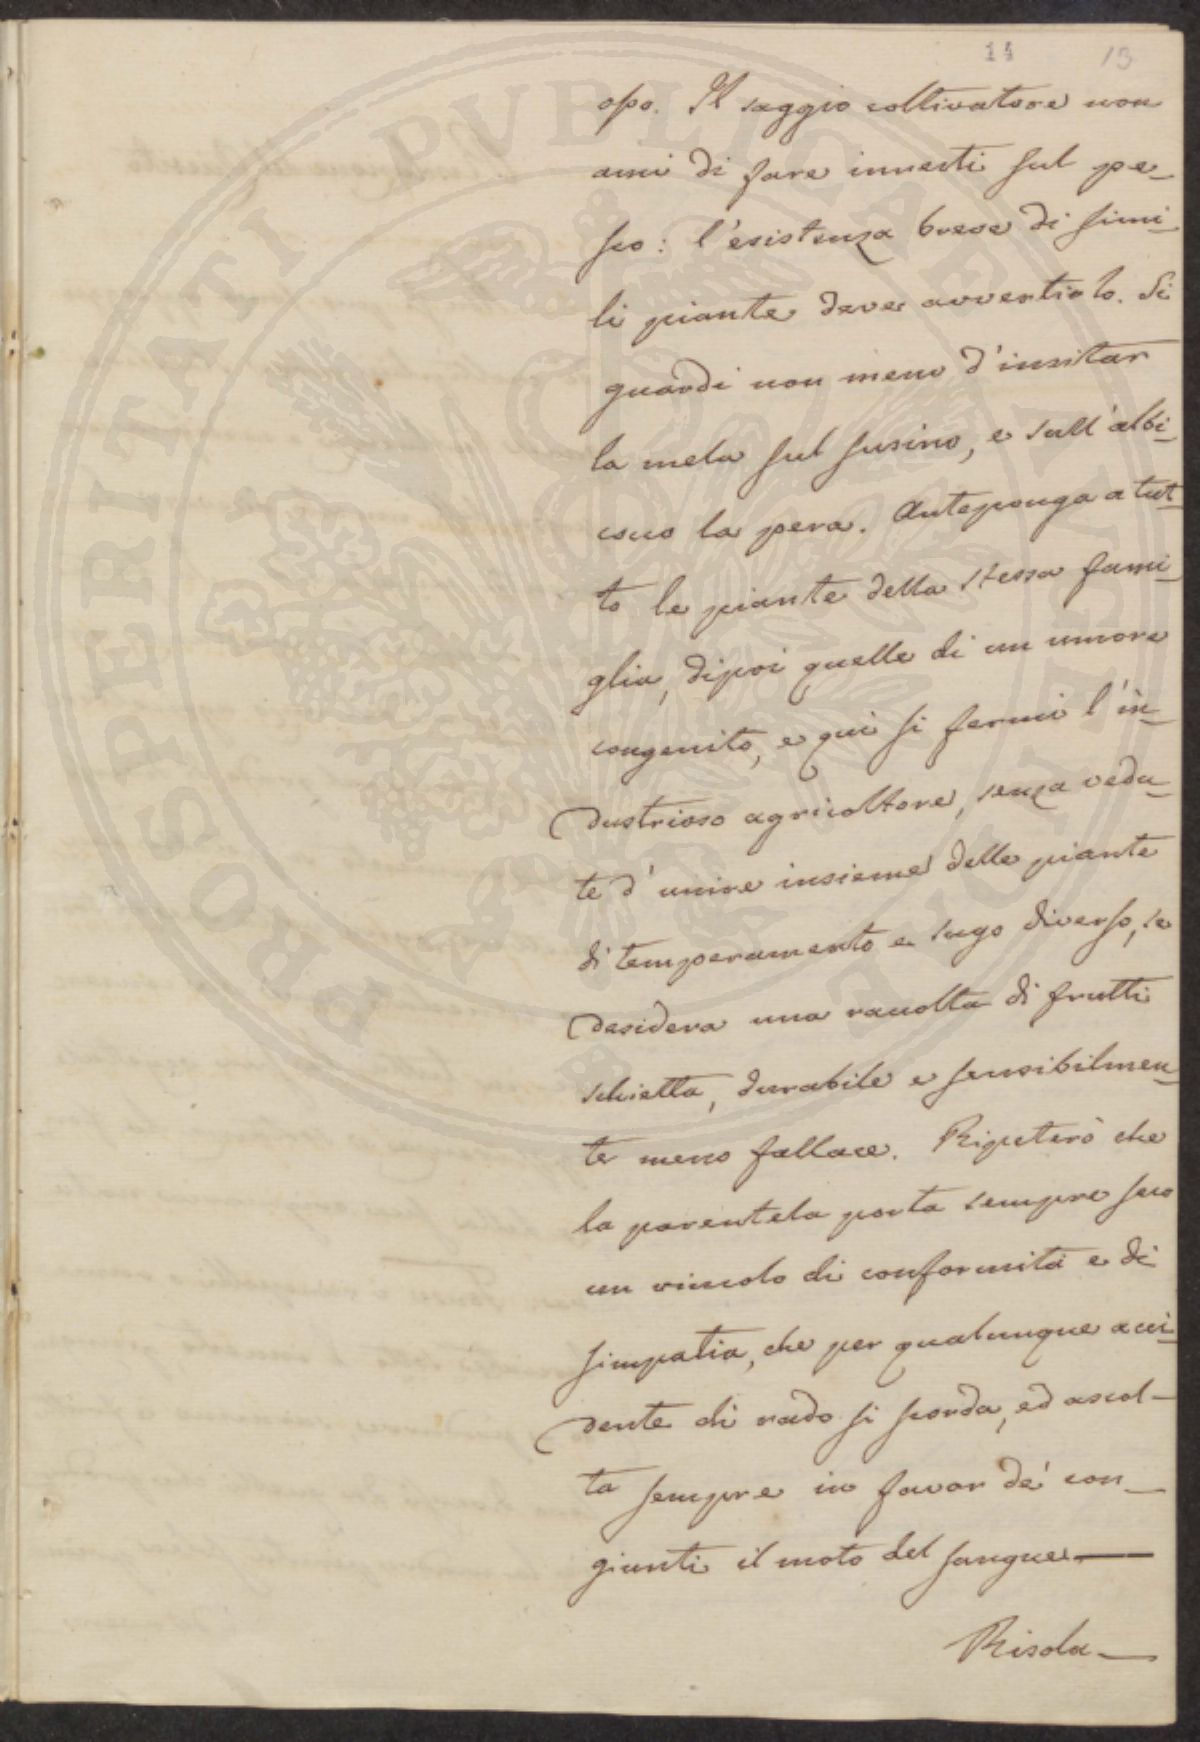 14 13
opo. Il saggio coltivatore non
ami di fare innesti sul pe-
sco: l'esistenza breve di simi-
li piante deve avvertirlo. Si
guardi non meno d'insitar
la mela sul susino, e sull'albi-
cocco la pera. Anteponga a tut-
to le piante della stessa fami-
glia, dipoi quelle di un umore
congenito, e qui si fermi l'in-
dustrioso agricoltore, senza vedu-
te d'unire insieme delle piante
di temperamento e sugo diverso, se
desidera una raccolta di frutti
schietta, durabile e sensibilmen-
te meno fallace. Ripeterò che
la parentela porta sempre seco
un vincolo di conformità e di
simpatia, che per qualunque acci-
dente di rado si scorda, ed ascol-
ta sempre in favor de' con-
giunti il moto del sangue—
Risola—
PROSPERITATI PVBLICAE AVGENDAE